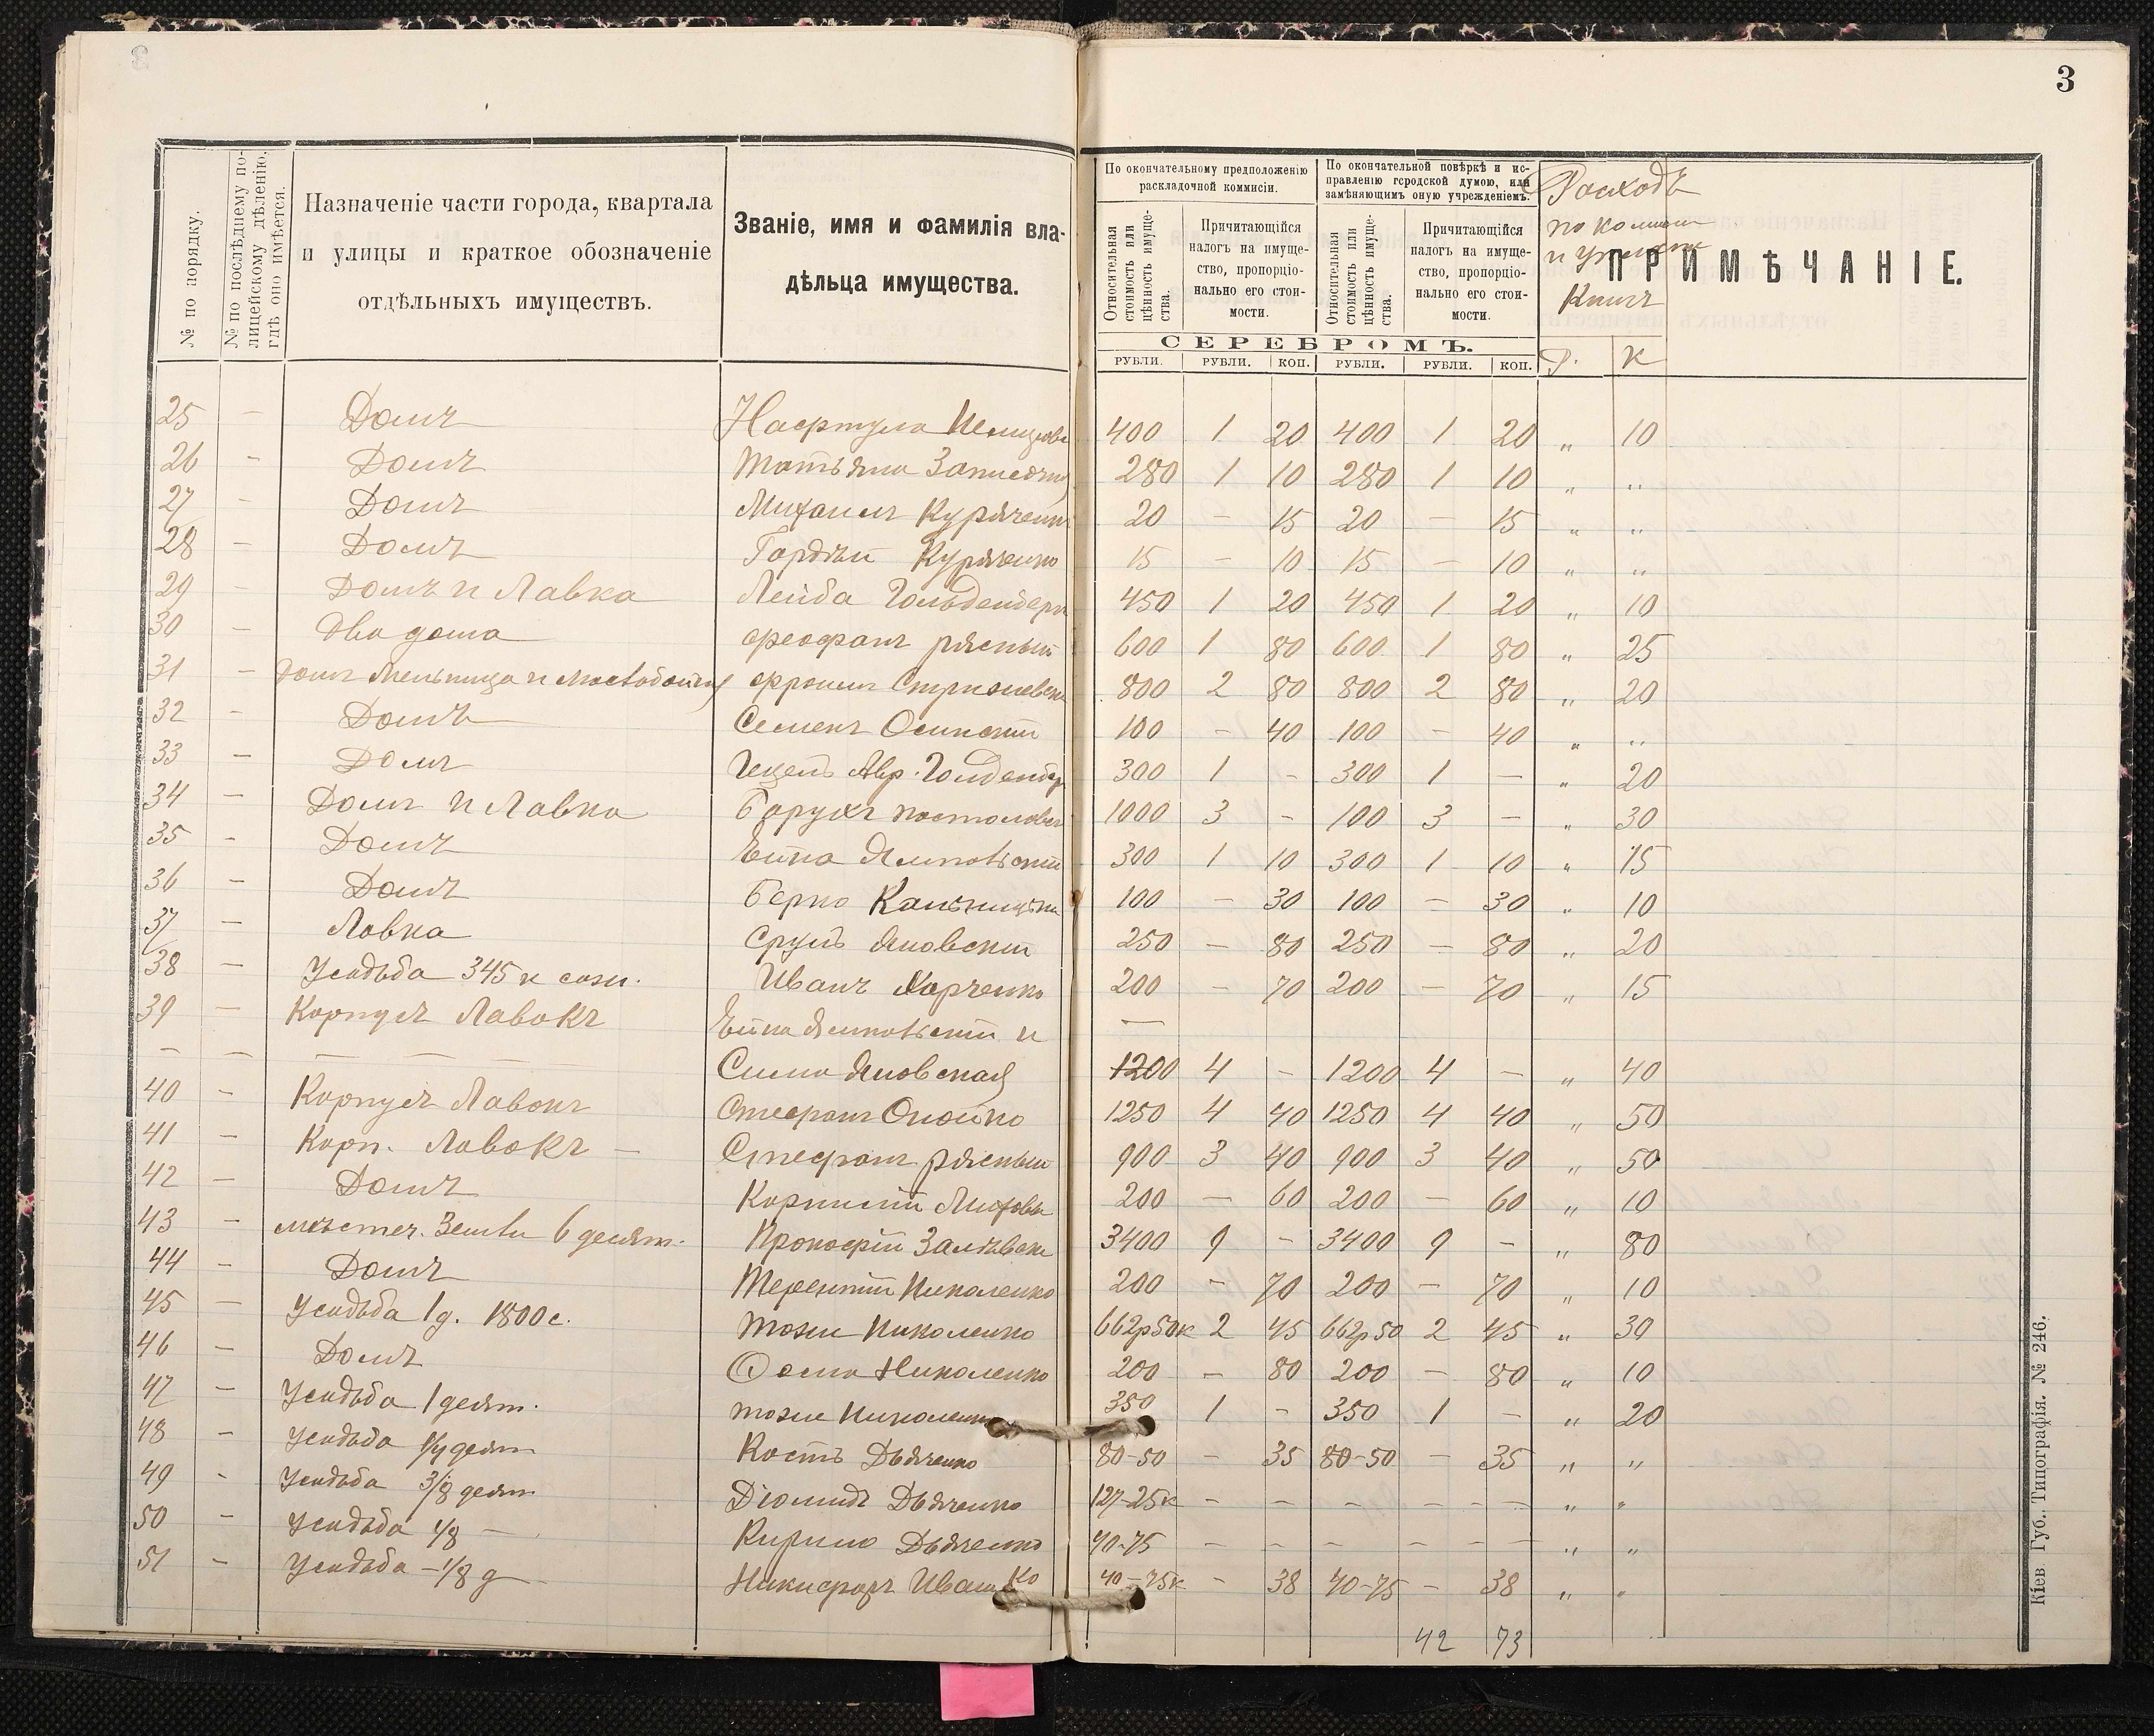 3
№ по порядку.
№ по послѣднему по-
лицейскому дѣленію,
гдѣ оно имѣется.
Назначеніе части города, квартала
и улицы и краткое обозначеніе
отдѣльныхъ имуществъ.
Званіе, имя и фамилія вла-
дѣльца имущества.
По окончательному предположенію
раскладочной коммисіи.
По окончательной повѣркѣ и ис-
правленію городской думою, или
замѣняющимъ оную учрежденіемъ.
Относительная
стоимость или
цѣнность имуще-
ства.
Причитающійся
налогъ на имуще-
ство, пропорціо-
нально его стои-
мости.
Относительная
стоимость или
цѣнность имуще-
ства.
Причитающійся
налогъ на имуще-
ство, пропорціо-
нально его стои-
мости.
Расходъ
по
и
Книгъ
ПРИМѢЧАНІЕ.
СЕРЕБРОМЪ.
РУБЛИ. РУБЛИ. КОП. РУБЛИ. РУБЛИ. КОП. Р. К
25 — Домъ 400 1 20 400 1 20 „ 10
26 — Домъ Татьяна 280 1 10 280 1 10 „ „
27 — Домъ Михаилъ Куряченко 20 — 15 20 — 15 „ „
28 — Домъ Гордѣй Куряченко 15 — 10 15 — 10 „ „
29 — Домъ и Лавка Лейба Гольденберг 450 1 20 450 1 20 „ 10
30 — Два дома Феофанъ Рясный 600 1 80 600 1 80 „ 25
31 — Домъ Мельница и Маслобойня Стрижевск 800 2 80 800 2 80 „ 20
32 — Домъ Семенъ Осинскій 100 — 40 100 — 40 „ „
33 — Домъ Гецель Авр. Голденбер 300 1 — 300 1 — „ 20
34 — Домъ и Лавка Борухъ Постоловск 1000 3 — 100 3 — „ 30
35 — Домъ Ямповскій 300 1 10 300 1 10 „ 15
36 — Домъ Берко Кальницкі 100 — 30 100 — 30 „ 10
37 — Лавка Сруль Яновскій 250 — 80 250 — 80 „ 20
38 — Усадьба 345 к саж. Иванъ Харченко 200 — 70 200 — 70 „ 15
39 — Корпусъ Лавокъ Ямповскій и —
— — — — — Сима Яновская 1200 4 — 1200 4 — „ 40
40 — Корпусъ Лавокъ Стефанъ 1250 4 40 1250 4 40 „ 50
41 — Корп. Лавокъ — Стефанъ Рясный 900 3 40 900 3 40 „ 50
42 — Домъ Корнилій 200 — 60 200 — 60 „ 10
43 — мѣстеч. Земли 6 десят. Прокофій Залѣвск 3400 9 — 3400 9 — „ 80
44 — Домъ Терентій Николенко 200 — 70 200 — 70 „ 10
45 — Усадьба 1 д. 1800 с. тоже Николенко 662р50к 2 45 662р50 2 45 „ 30
46 — Домъ Фома Николенко 200 — 80 200 — 80 „ 10
47 — Усадьба 1 десят. тоже Николенко 350 1 — 350 1 — „ 20
48 — Усадьба 1/4 десят Кость Дьяченко 80-50 — 35 80-50 — 35 „ „
49 — Усадьба 3/8 десят Діомидъ Дьяченко 127-25к — — — — — „ „
50 — Усадьба 1/8 — Кирило Дьяченко 40-75 — — — — — „ „
51 — Усадьба — 1/8 д Никифоръ Ивашко 40-75к — 38 40-75 — 38 „ „
42 73
Кіев Губ. Типографія. № 246.